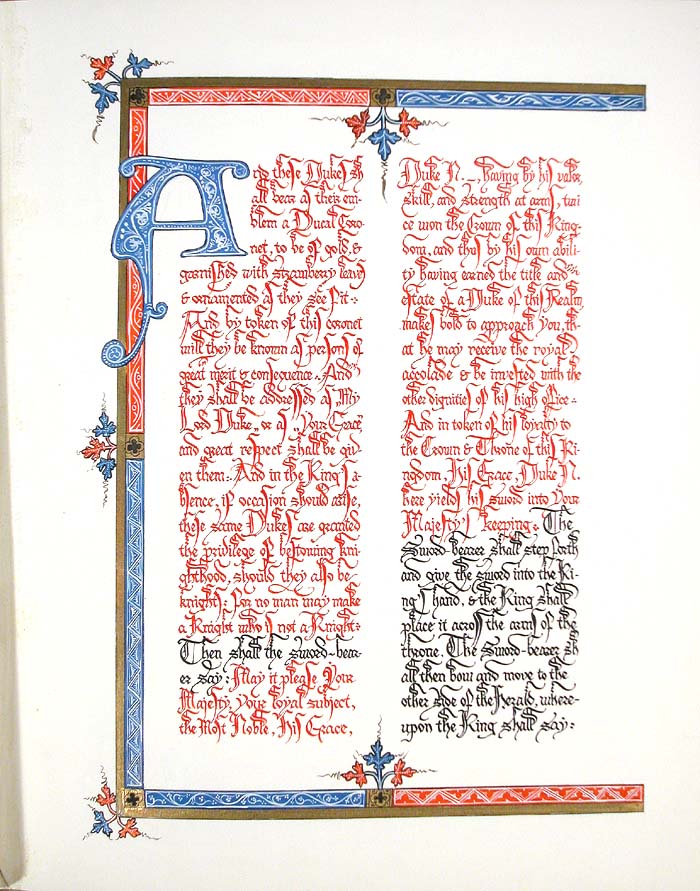 And these Dukes sh
all bear as their em-
blem a Ducal Coro-
net, to be of gold, &
garnished with strawberry leaves
& ornamented as they see fit:
And by token of this coronet
will they be known as persons of
great merit & consequence. And
they shall be addressed as "My
Lord Duke", or as "Your Grace"
and great respect shall be giv-
en them: And in the King's a-
bsence, if occasion should arise,
these same Dukes are granted
the privilege of bestowing kni-
ghthood, should they also be
knights: for no man may make
a Knight who is not a Knight:
Then shall the sword-bear-
er say: May it please Your
Majesty, your loyal subject,
the Most Noble, His Grace,
Duke N._, having by his valor,
skill, and strength at arms, twi
ce won the Crown of this King-
dom, and thus by his own abili-
ty having earned the title and
estate of a Duke of this Realm
makes bold to approach you, th-
at he may receive the royal
accolade & be invested with the
other dignities of his high office:
And in token of his loyalty to
the Crown & Throne of this Ki-
ngdom, His Grace, Duke N.
here yields his sword into Your
Majesty's keeping: The
Sword-bearer shall step forth
and give the sword into the Ki-
ng's hand, & the King shall
place it across the arms of the
throne. The Sword-bearer sh
all then bow and move to the
other side of the Herald, where-
upon the King shall say: